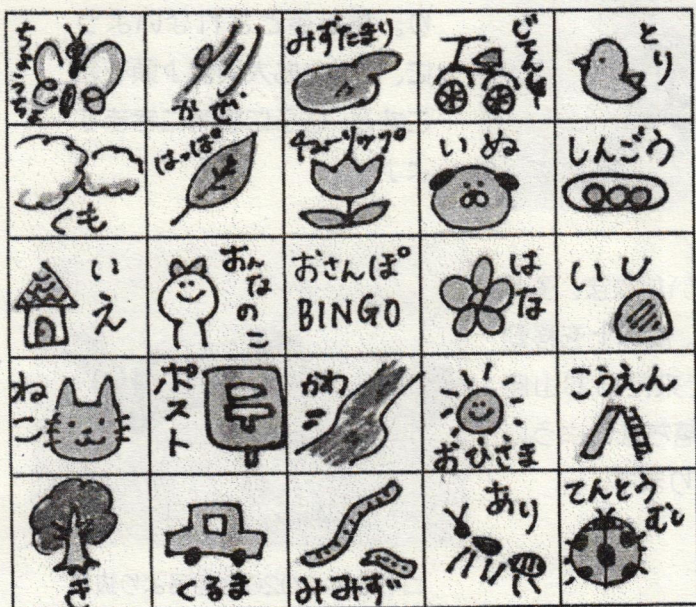 ちょうちょ
かぜ
みずたまり
じてんしゃ
とり
くも
はっぱ
チューリップ
いぬ
しんごう
いえ
おんなのこ
おさんぽ
BINGO
はな
いし
ねこ
ポスト
かわ
おひさま
こうえん
き
くるま
みみず
あり
てんとう
むし